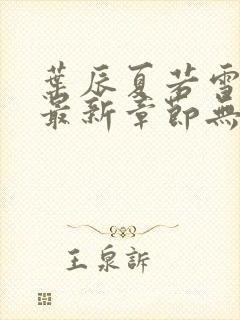 葉辰夏若雪
最新章節無
王泉訴